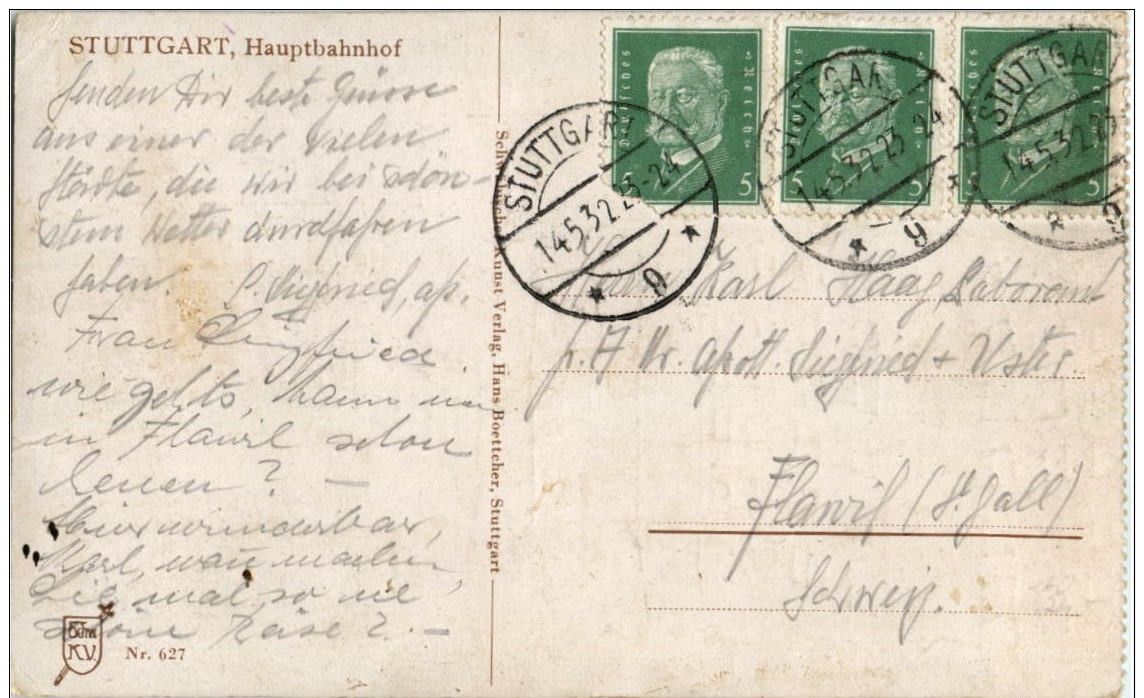 STUTTGART, Hauptbahnhof
Senden Dir beste Grüsse
aus einer der vielen
Städte, die wir bei schön-
stem Wetter durchfahren
haben. P. Siegfried, ap.
Frau Siegfried
wie geht's, kann in
in Flawil schon
heuen? —
Hier wunderbar,
Karl, wañ machen
Sie mal so ne
schöne Reise? . —
Schw. K.V.
Nr. 627
Schwäbischer Kunst Verlag, Hans Boettcher, Stuttgart
Deutsches Reich
5
Deutsches Reich
5
Deutsches Reich
5
STUTTGART
14.5.32.23-24
* 9 *
STUTTGART
14.5.32.23-24
* 9 *
STUTTGART
14.5.32.23
* 9
Karl Haag, Laborant
Apoth. Siegfried + Uster
Flawil (St. Gall)
Schweiz.